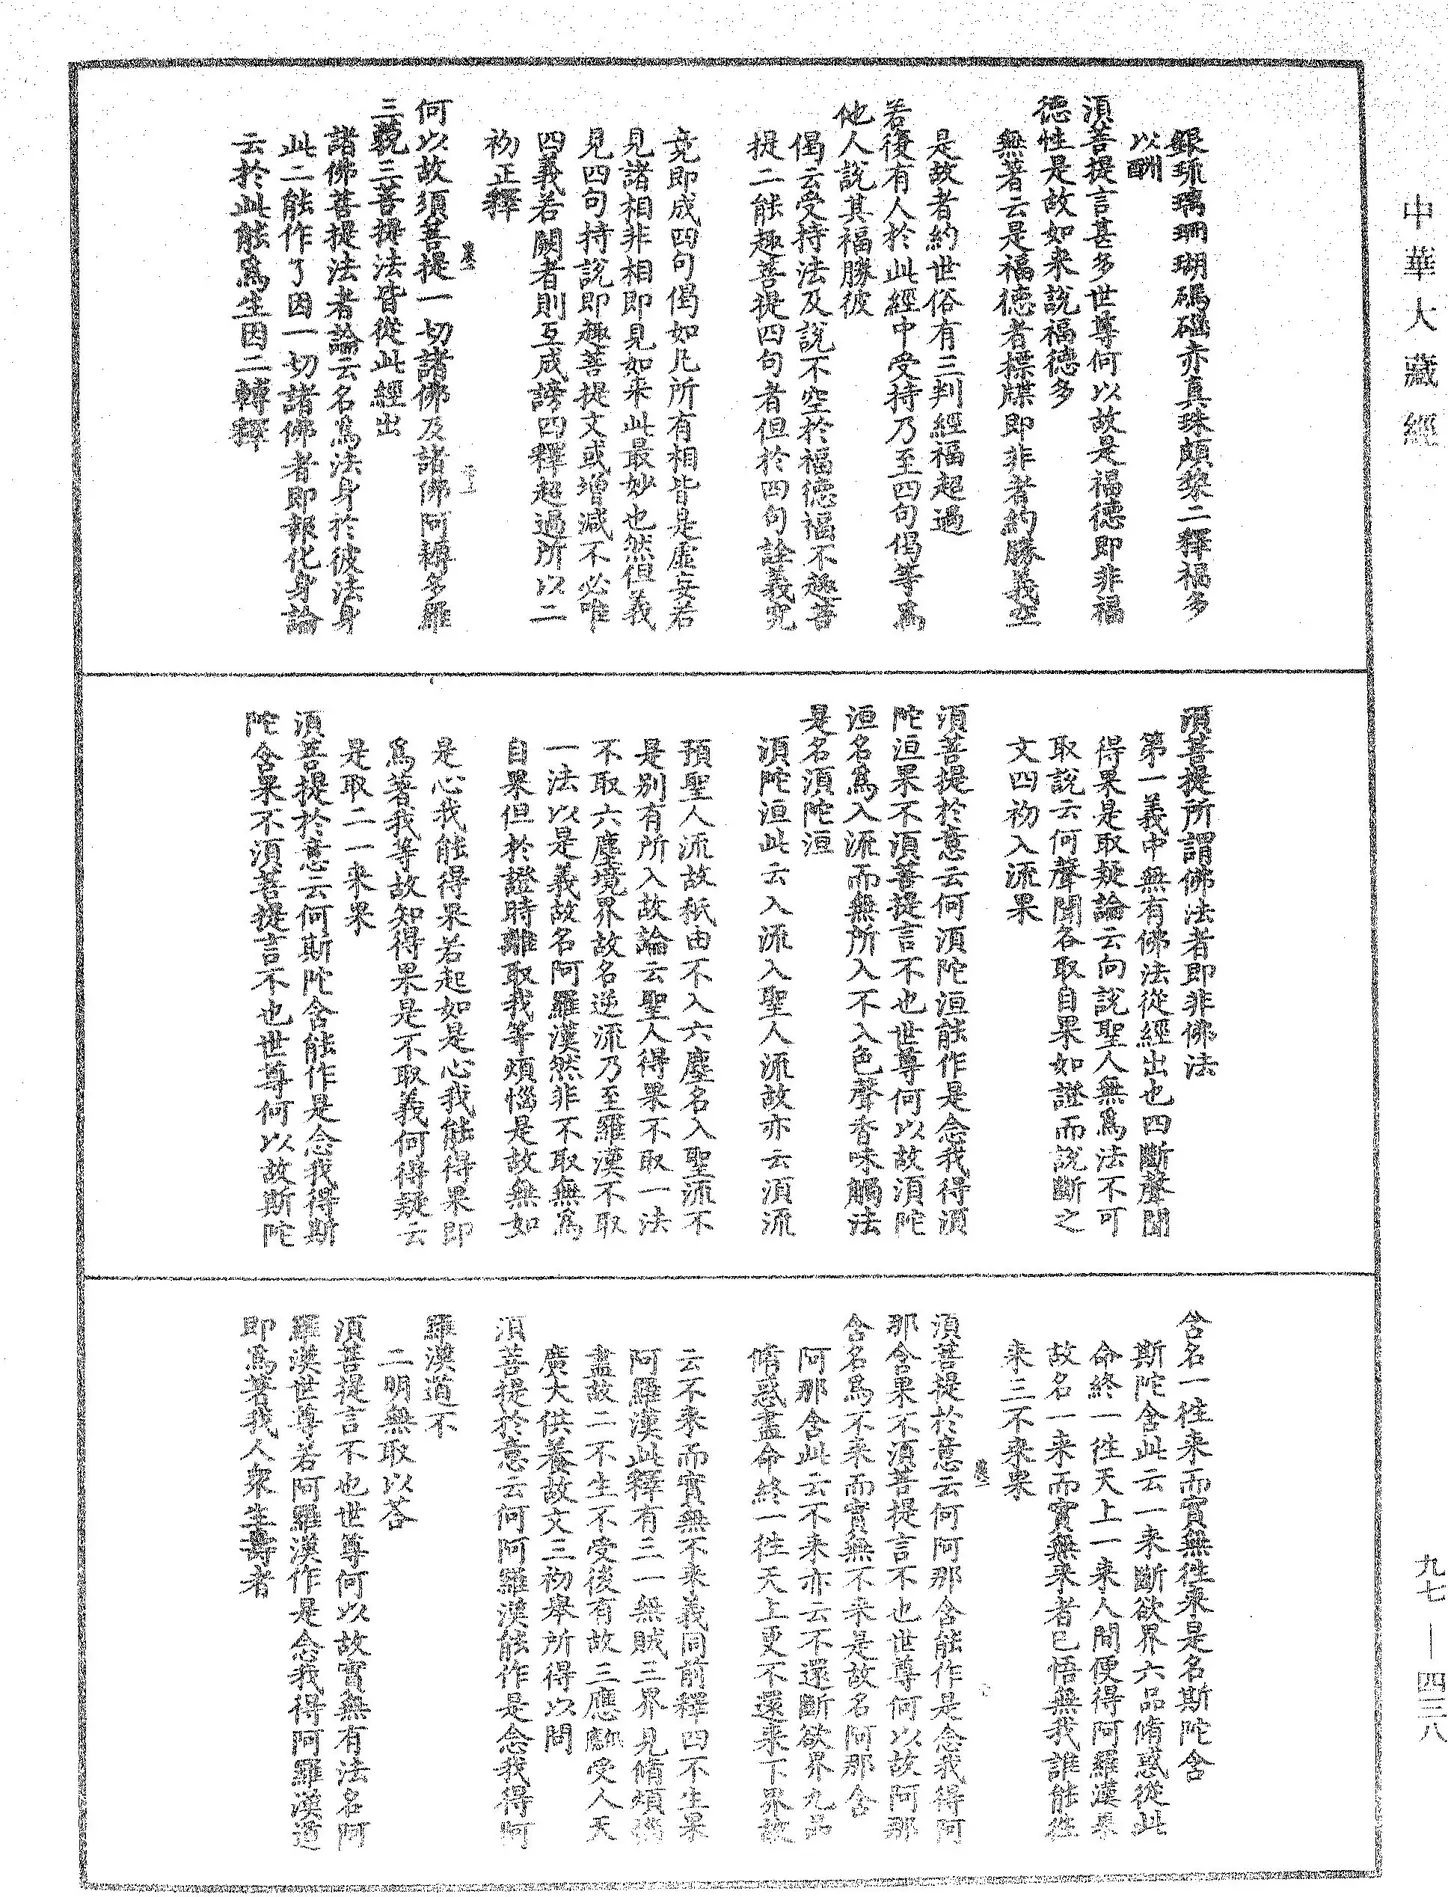 中華大藏經
銀琉璃珊瑚碼碯亦真珠頗黎二釋福多
以酬
須菩提言甚多世尊何以故是福德即非福
德性是故如来說福德多
無著云是福德者摽牒即非者約勝義空
是故者約世俗有三判經福超過
若復有人於此經中受持乃至四句偈等為
他人說其福勝彼
偈云受持法及說不空於福德福不趣菩
提二能趣菩提四句者但於四句詮義究
竟即成四句偈如凡所有相皆是虛妄若
見諸相非相即見如来此最妙也然但義
見四句持說即趣菩提文或增減不必唯
四義若闕者則互成謗四釋超過所以二
初正釋
何以故須菩提一切諸佛及諸佛阿耨多羅
三藐三菩提法皆從此經出
諸佛菩提法者論云名為法身於彼法身
此二能作了因一切諸佛者即報化身論
云於此能為生因二轉釋
須菩提所謂佛法者即非佛法
第一義中無有佛法從經出也四斷聲聞
得果是取疑論云向說聖人無為法不可
取說云何聲聞各取自果如證而說斷之
文四初入流果
須菩提於意云何須陀洹能作是念我得須
陀洹果不須菩提言不也世尊何以故須陀
洹名為入流而無所入不入色聲香味觸法
是名須陀洹
須陀洹此云入流入聖人流故亦云須流
預聖人流故秖由不入六塵名入聖流不
是別有所入故論云聖人得果不取一法
不取六塵境界故名逆流乃至羅漢不取
一法以是義故名阿羅漢然非不取無為
自果但於證時離取我等煩惱是故無如
是心我能得果若起如是心我能得果即
為著我等故知得果是不取義何得疑云
是取二一来果
須菩提於意云何斯陀含能作是念我得斯
陀含果不須菩提言不也世尊何以故斯陀
含名一往来而實無往来是名斯陀含
斯陀含此云一来斷欲界六品脩惑從此
命終一往天上一来人間便得阿羅漢果
故名一来而實無来者已悟無我誰能往
来三不来果
須菩提於意云何阿那含能作是念我得阿
那含果不須菩提言不也世尊何以故阿那
含名為不来而實無不来是故名阿那含
阿那含此云不来亦云不還斷欲界九品
脩惑盡命終一往天上更不還来下界故
云不来而實無不来義同前釋四不生果
阿羅漢此釋有三一無賊三界見脩煩惱
盡故二不生不受後有故三應受人天
廣大供養故文三初舉所得以問
須菩提於意云何阿羅漢能作是念我得阿
羅漢道不
二明無取以荅
須菩提言不也世尊何以故實無有法名阿
羅漢世尊若阿羅漢作是念我得阿羅漢道
即為著我人眾生壽者
九七—四三八